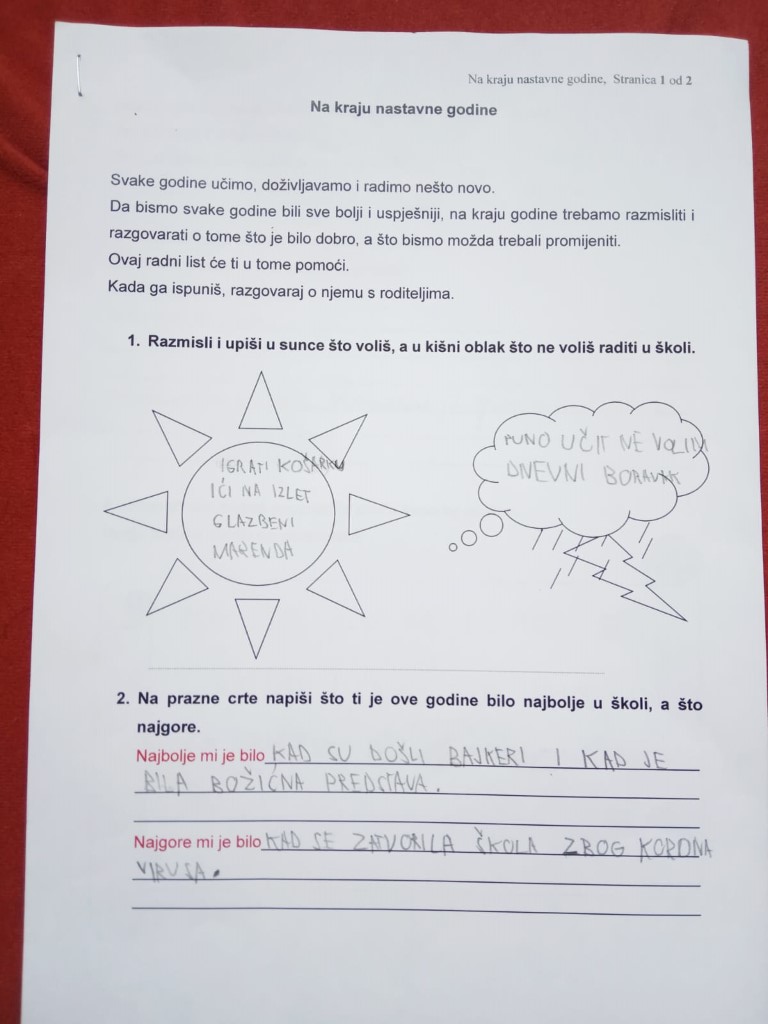 Na kraju nastavne godine, Stranica 1 od 2
Na kraju nastavne godine
Svake godine učimo, doživljavamo i radimo nešto novo.
Da bismo svake godine bili sve bolji i uspješniji, na kraju godine trebamo razmisliti i
razgovarati o tome što je bilo dobro, a što bismo možda trebali promijeniti.
Ovaj radni list će ti u tome pomoći.
Kada ga ispuniš, razgovaraj o njemu s roditeljima.
1. Razmisli i upiši u sunce što voliš, a u kišni oblak što ne voliš raditi u školi.
IGRATI KOŠARKU
IĆI NA IZLET
GLAZBENI
MARENDA
PUNO UČIT NE VOLIM
DNEVNI BORAVAK
2. Na prazne crte napiši što ti je ove godine bilo najbolje u školi, a što
najgore.
Najbolje mi je bilo KAD SU DOŠLI BAJKERI I KAD JE
BILA BOŽIĆNA PREDSTAVA.
Najgore mi je bilo KAD SE ZATVORILA ŠKOLA ZBOG KORONA
VIRUSA.